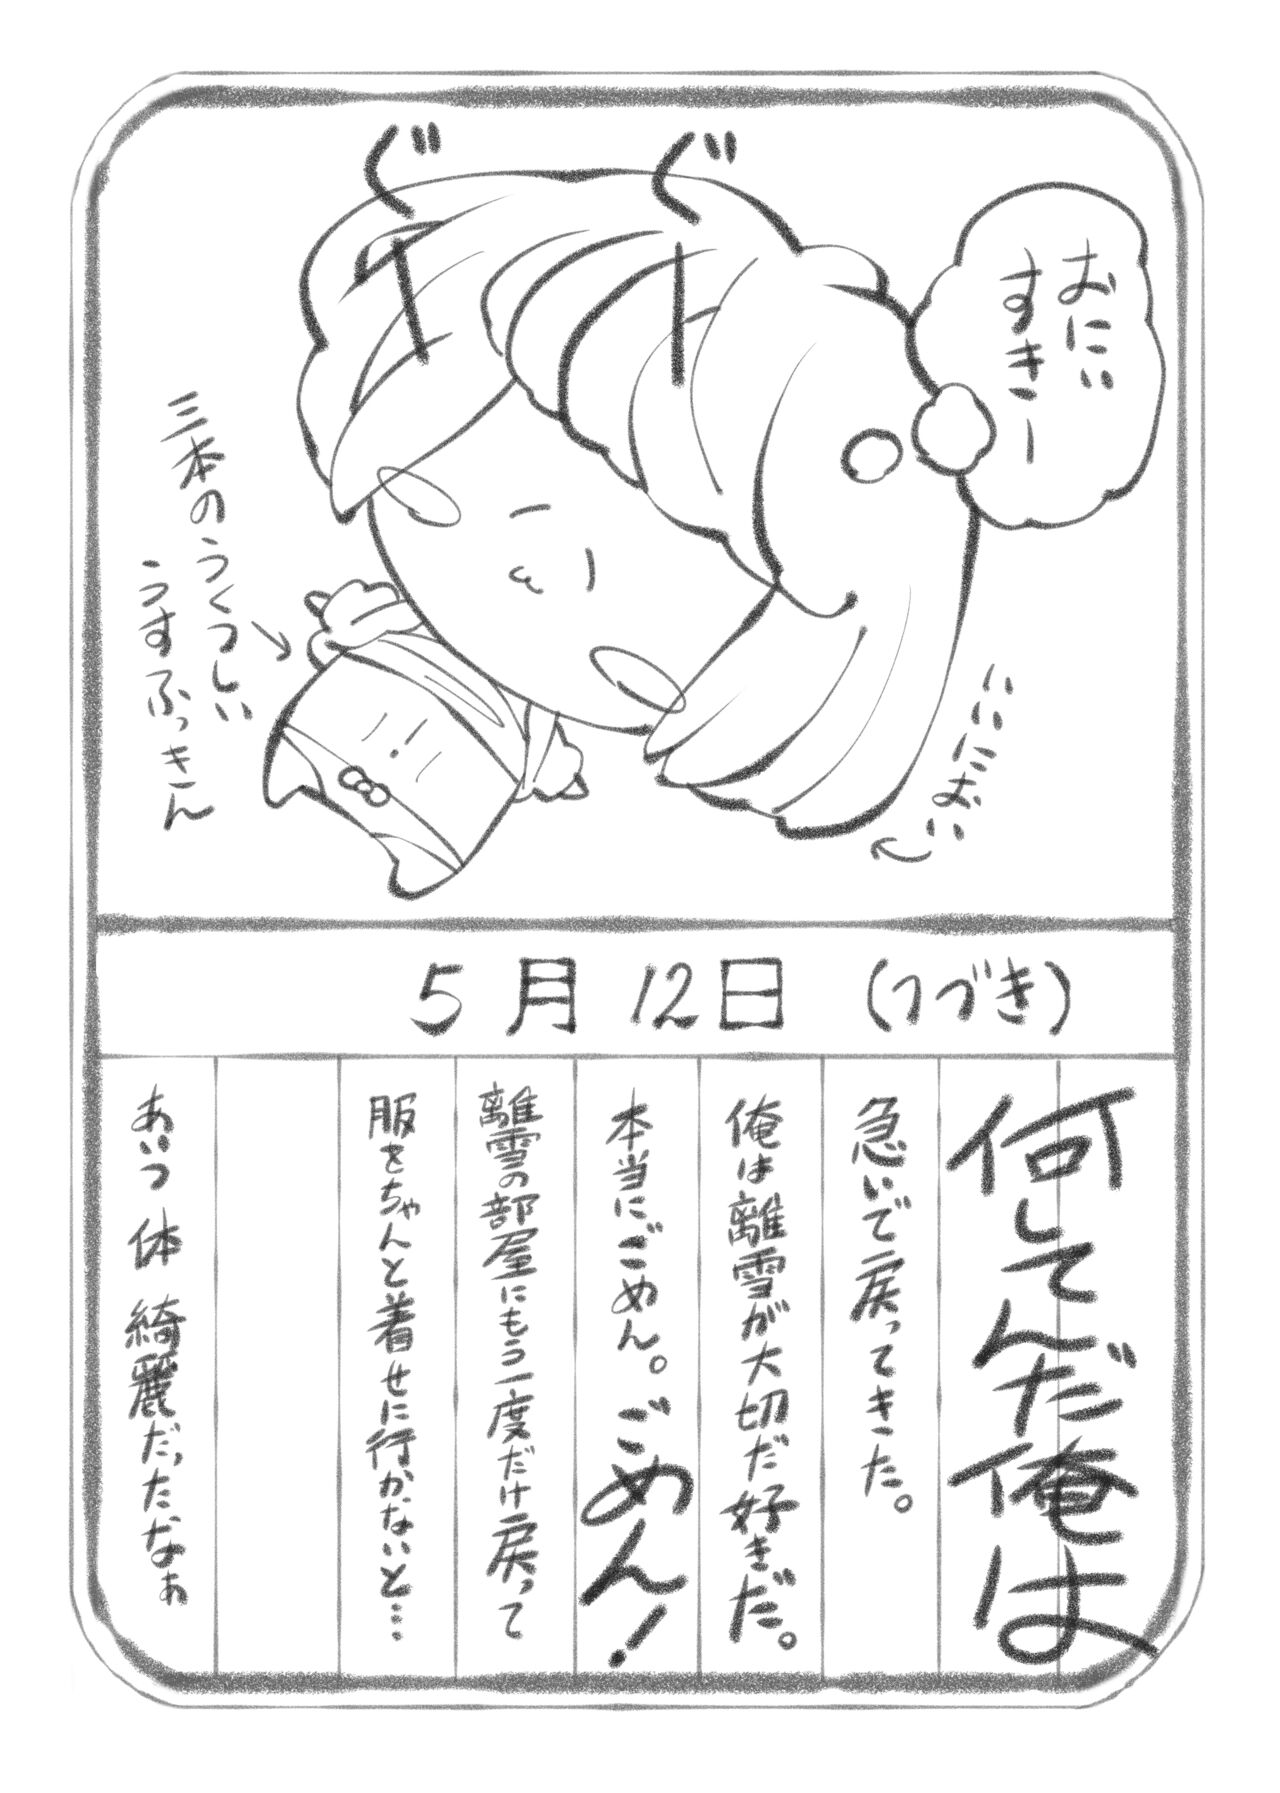 おにい
すきー
ぐー
ぐー
三本のうくつしい
うすふっきん
いいにおい
5月12日(つづき)
何してんだ俺は
急いで戻ってきた。
俺は離雪が大切だ好きだ。
本当にごめん。ごめん!
離雪の部屋にもう一度だけ戻って
服をちゃんと着せに行かないと…
あいつ 体 綺麗だったなぁ